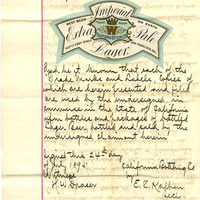 BEST BEER ON EARTH
Imperial
Extra Pale
W
Lager
And be it known that each of the
Trade Marks and Labels copies of
which are herein presented and filed
are used by the undersigned in
commerce in the State of California
upon bottles and packages of bottled
Lager Beer bottled and sold by the
undersigned claimant herein
Signed this 24th day
of July 1893
California Bottling Co
Witness by
H. W. Fraser E. R.
Secy